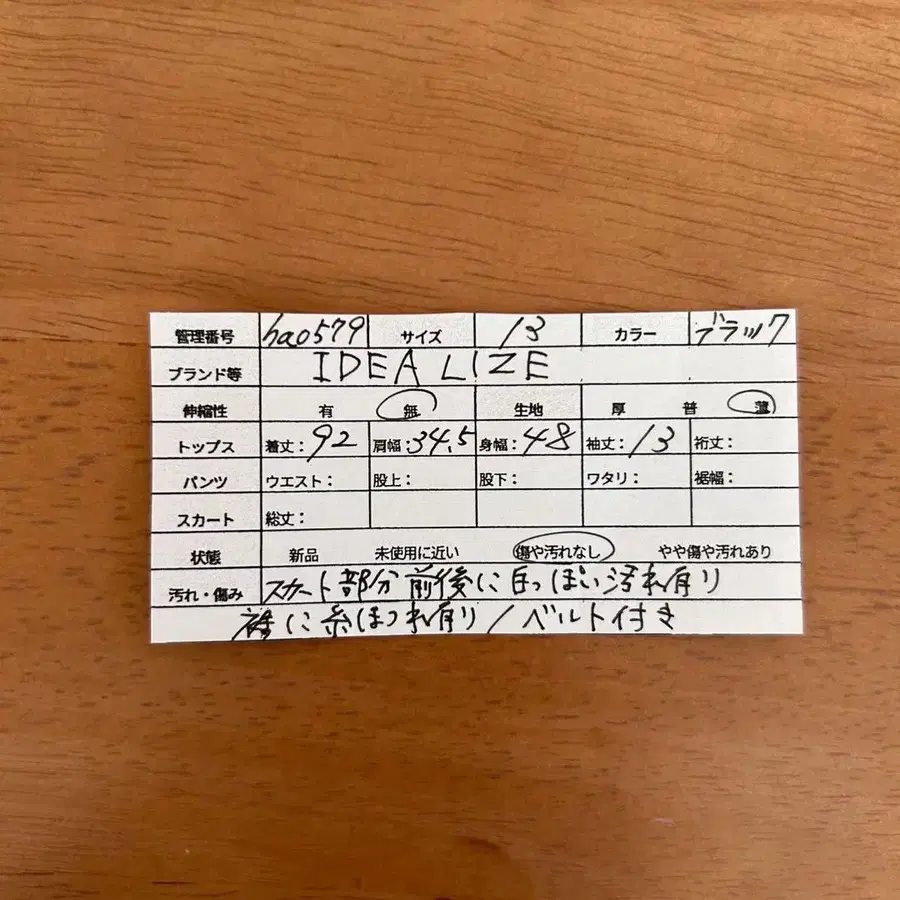 管理番号 ha0579 サイズ 13 カラー ブラック
ブランド等 IDEALIZE
伸縮性 有 無 生地 厚 普 薄
トップス 着丈:92 肩幅:34.5 身幅:48 袖丈:13 裄丈:
パンツ ウエスト: 股上: 股下: ワタリ: 裾幅:
スカート 総丈:
状態 新品 未使用に近い 傷や汚れなし やや傷や汚れあり
汚れ・傷み スカート部分前後に白っぽい汚れ有り
に糸ほつれ有り/ベルト付き